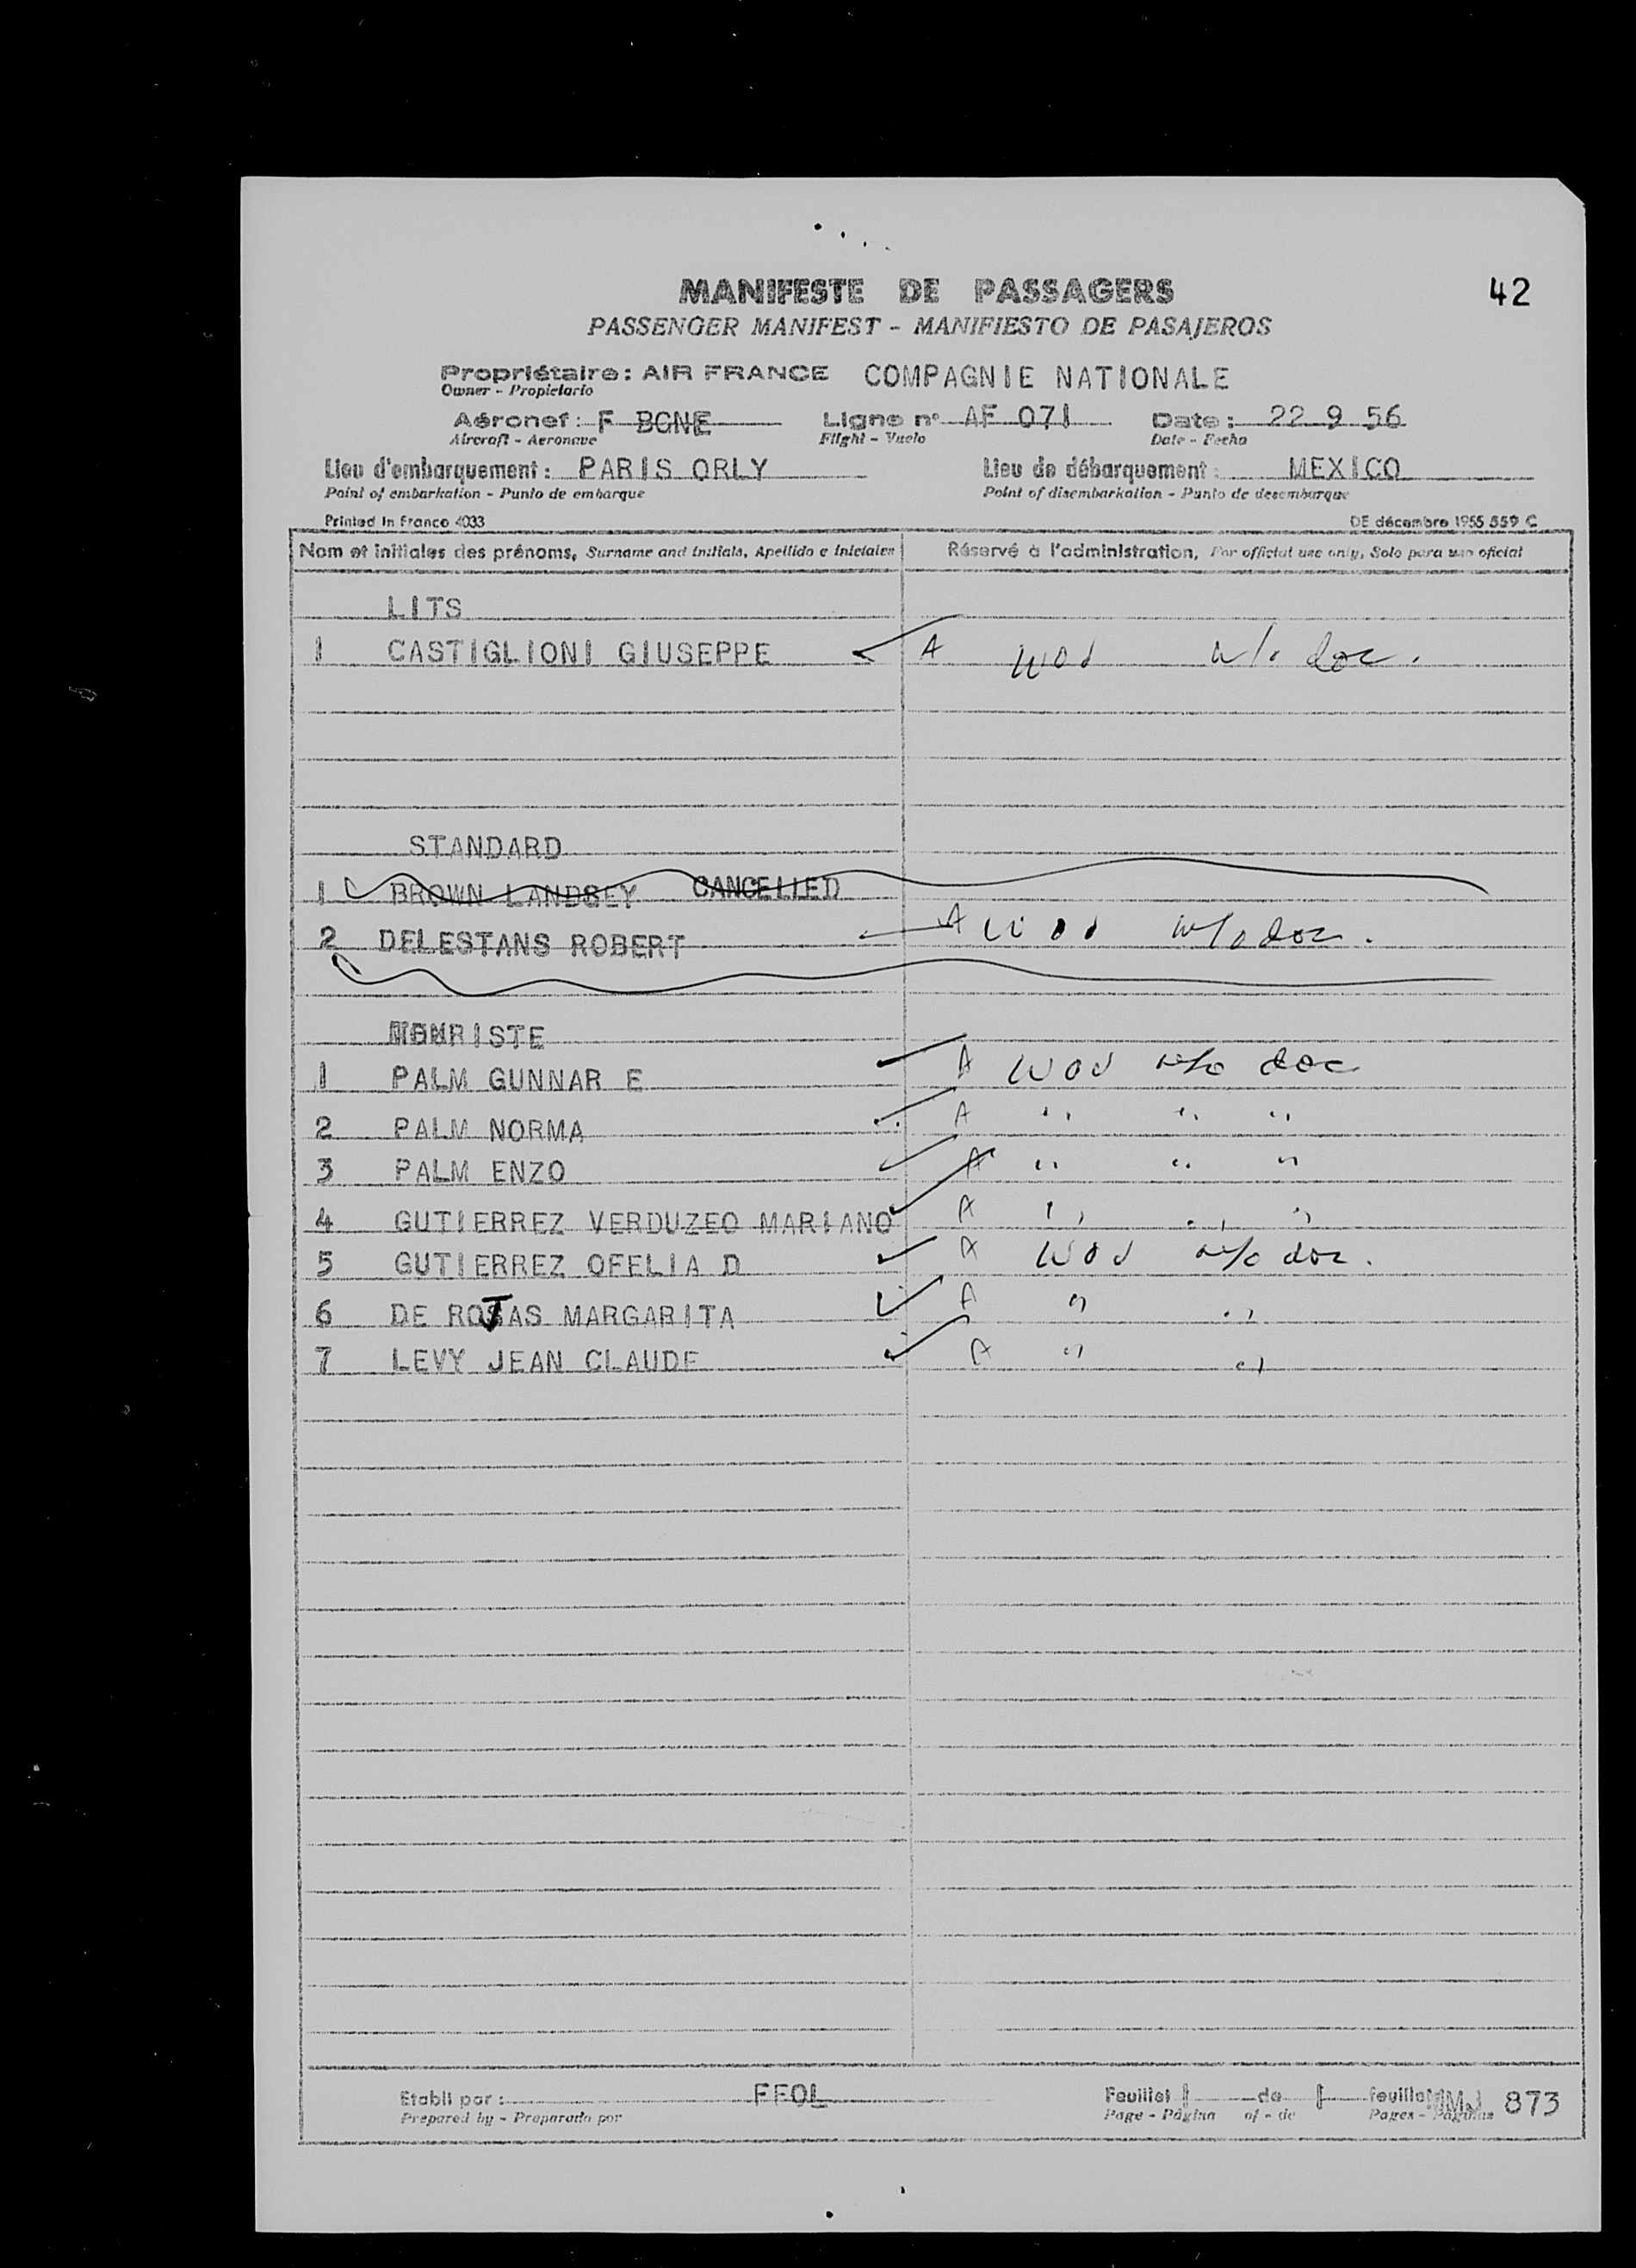 42
MANIFESTE DE PASSAGERS
PASSENGER MANIFEST - MANIFIESTO DE PASAJEROS
Propriétaire: AIR FRANCE COMPAGNIE NATIONALE
Owner - Propietario
Aéronef: F BGNE Ligne n° AF 071 Date: 22 9 56
Aircraft - Aeronave Flight - Vuelo Date - Fecha
Lieu d'embarquement: PARIS ORLY Lieu de débarquement: MEXICO
Point of embarkation - Punto de embarque Point of disembarkation - Punto de desembarque
Printed in France 4033 DE décembre 1955 559 C
Nom et initiales des prénoms, Surname and initials, Apellido e iniciales Réservé à l'administration, For official use only, Solo para uso oficial
LITS
1 CASTIGLIONI GIUSEPPE A WOD w/o doc.
STANDARD
1 BROWN LANDSEY CANCELLED
2 DELESTANS ROBERT A w/o doc.
TOURISTE
1 PALM GUNNAR E A WOD w/o doc
2 PALM NORMA A " " "
3 PALM ENZO A " " "
4 GUTIERREZ VERDUZEO MARIANO A " " "
5 GUTIERREZ OFELIA D A WOD w/o doc.
6 DE ROJAS MARGARITA A " "
7 LEVY JEAN CLAUDE A " "
Etabli par: FFOL Feuillet 1 de 1 feuillets MMJ 873
Prepared by - Preparado por Page - Página of - de Pages - Páginas